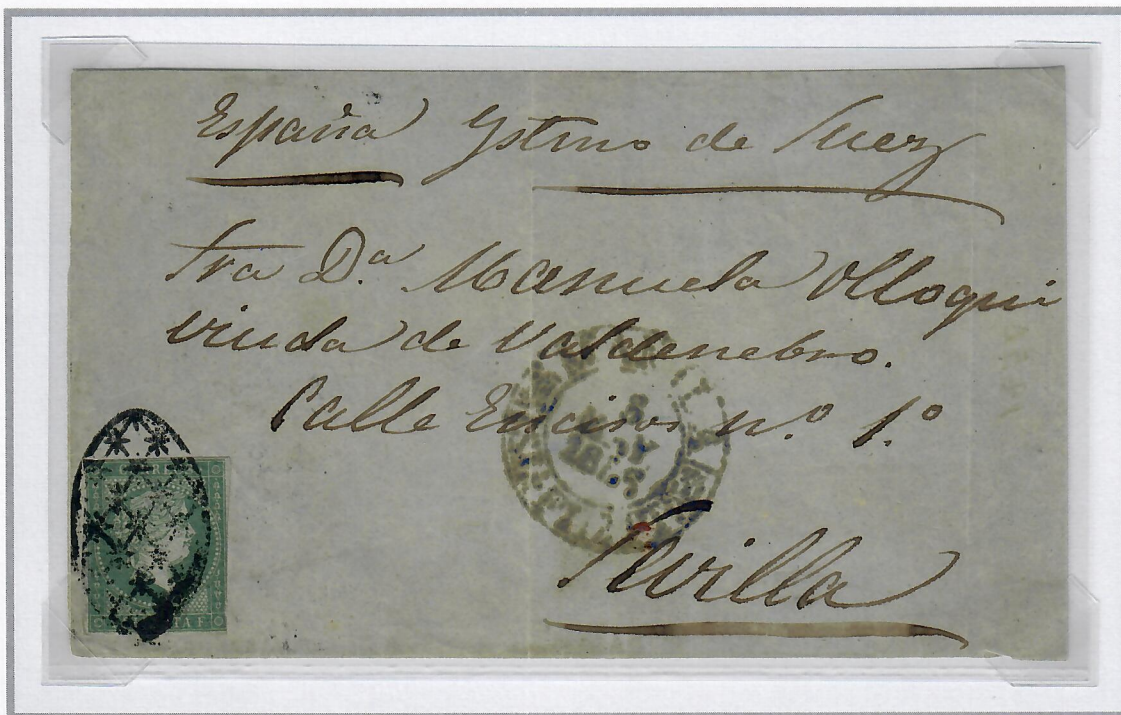 España Ystmo de Suez
Sra Dª Manuela Olloqui
viuda de Valdenebro.
Calle Encisos nº 1º
Sevilla
CORRE
TA F